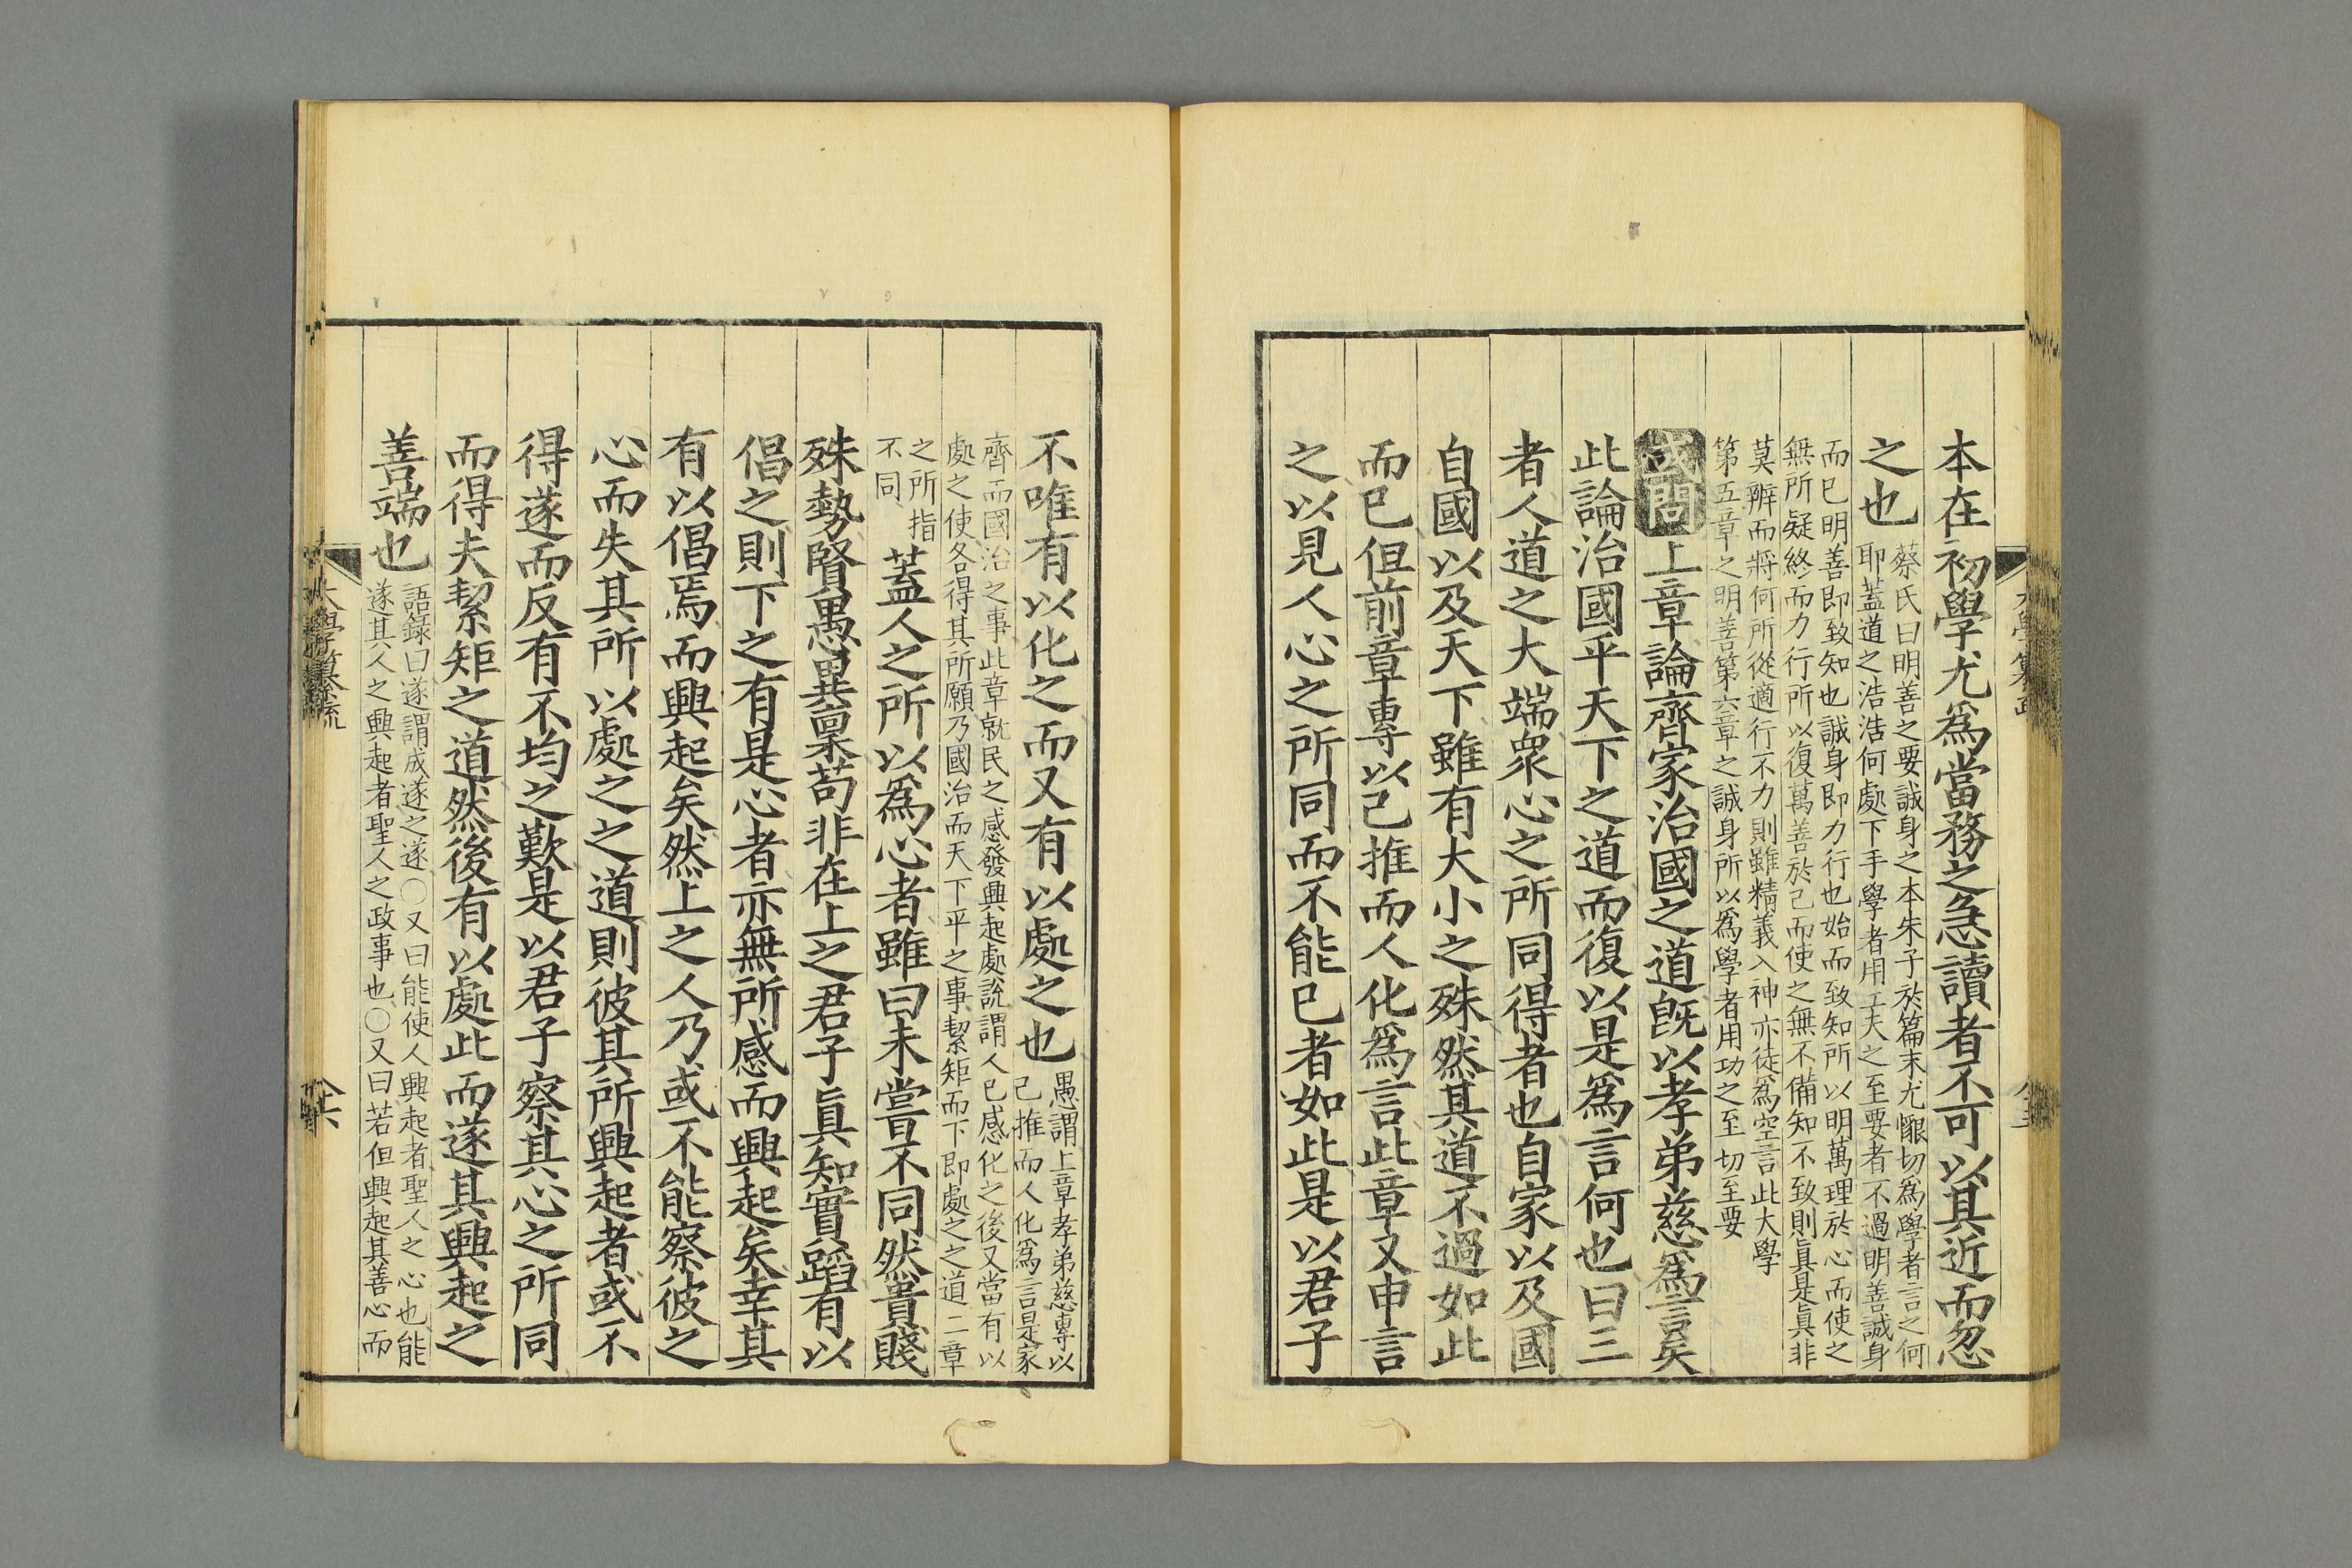 本在初學尤爲當務之急讀者不可以其近而忽
之也
蔡氏曰明善之要誠身之本朱子於篇末尤懇切爲學者言之何
耶蓋道之浩浩何處下手學者用工夫之至要者不過明善誠身
而已明善即致知也誠身即力行也始而致知所以明萬理於心而使之
無所疑終而力行所以復萬善於己而使之無不備知不致則眞是眞非
莫辨而將何所從適行不力則雖精義入神亦徒爲空言此大學
第五章之明善第六章之誠身所以爲學者用功之至切至要
或問上章論齊家治國之道旣以孝弟慈爲言矣
此論治國平天下之道而復以是爲言何也曰三
者人道之大端衆心之所同得者也自家以及國
自國以及天下雖有大小之殊然其道不過如此
而已但前章專以己推而人化爲言此章又申言
之以見人心之所同而不能已者如此是以君子
不唯有以化之而又有以處之也
愚謂上章孝弟慈專以
己推而人化爲言是家
齊而國治之事此章就民之感發興起處說謂人已感化之後又當有以
處之使各得其所願乃國治而天下平之事絜矩而下即處之之道二章
之所指
不同
蓋人之所以爲心者雖曰未嘗不同然貴賤
殊勢賢愚異稟苟非在上之君子眞知實蹈有以
倡之則下之有是心者亦無所感而興起矣幸其
有以倡焉而興起矣然上之人乃或不能察彼之
心而失其所以處之之道則彼其所興起者或不
得遂而反有不均之歎是以君子察其心之所同
而得夫絜矩之道然後有以處此而遂其興起之
善端也
語錄曰遂謂成遂之遂○又曰能使人興起者聖人之心也能
遂其人之興起者聖人之政事也○又曰若但興起其善心而
大學纂疏
八十六